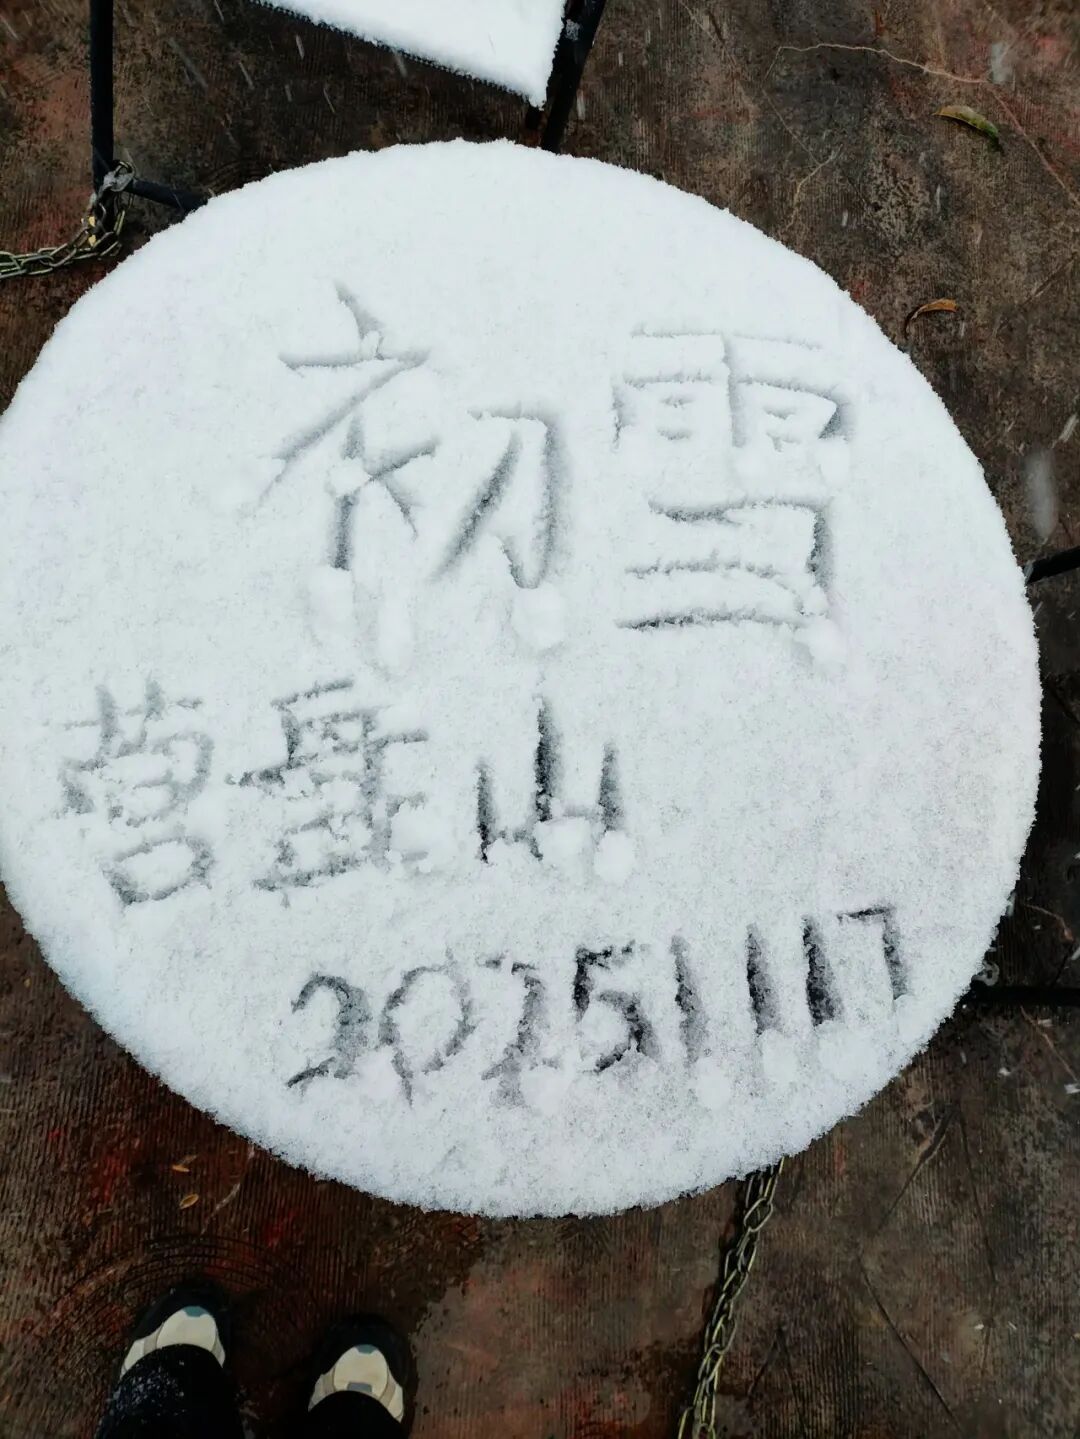 初雪
营盘山
20251117